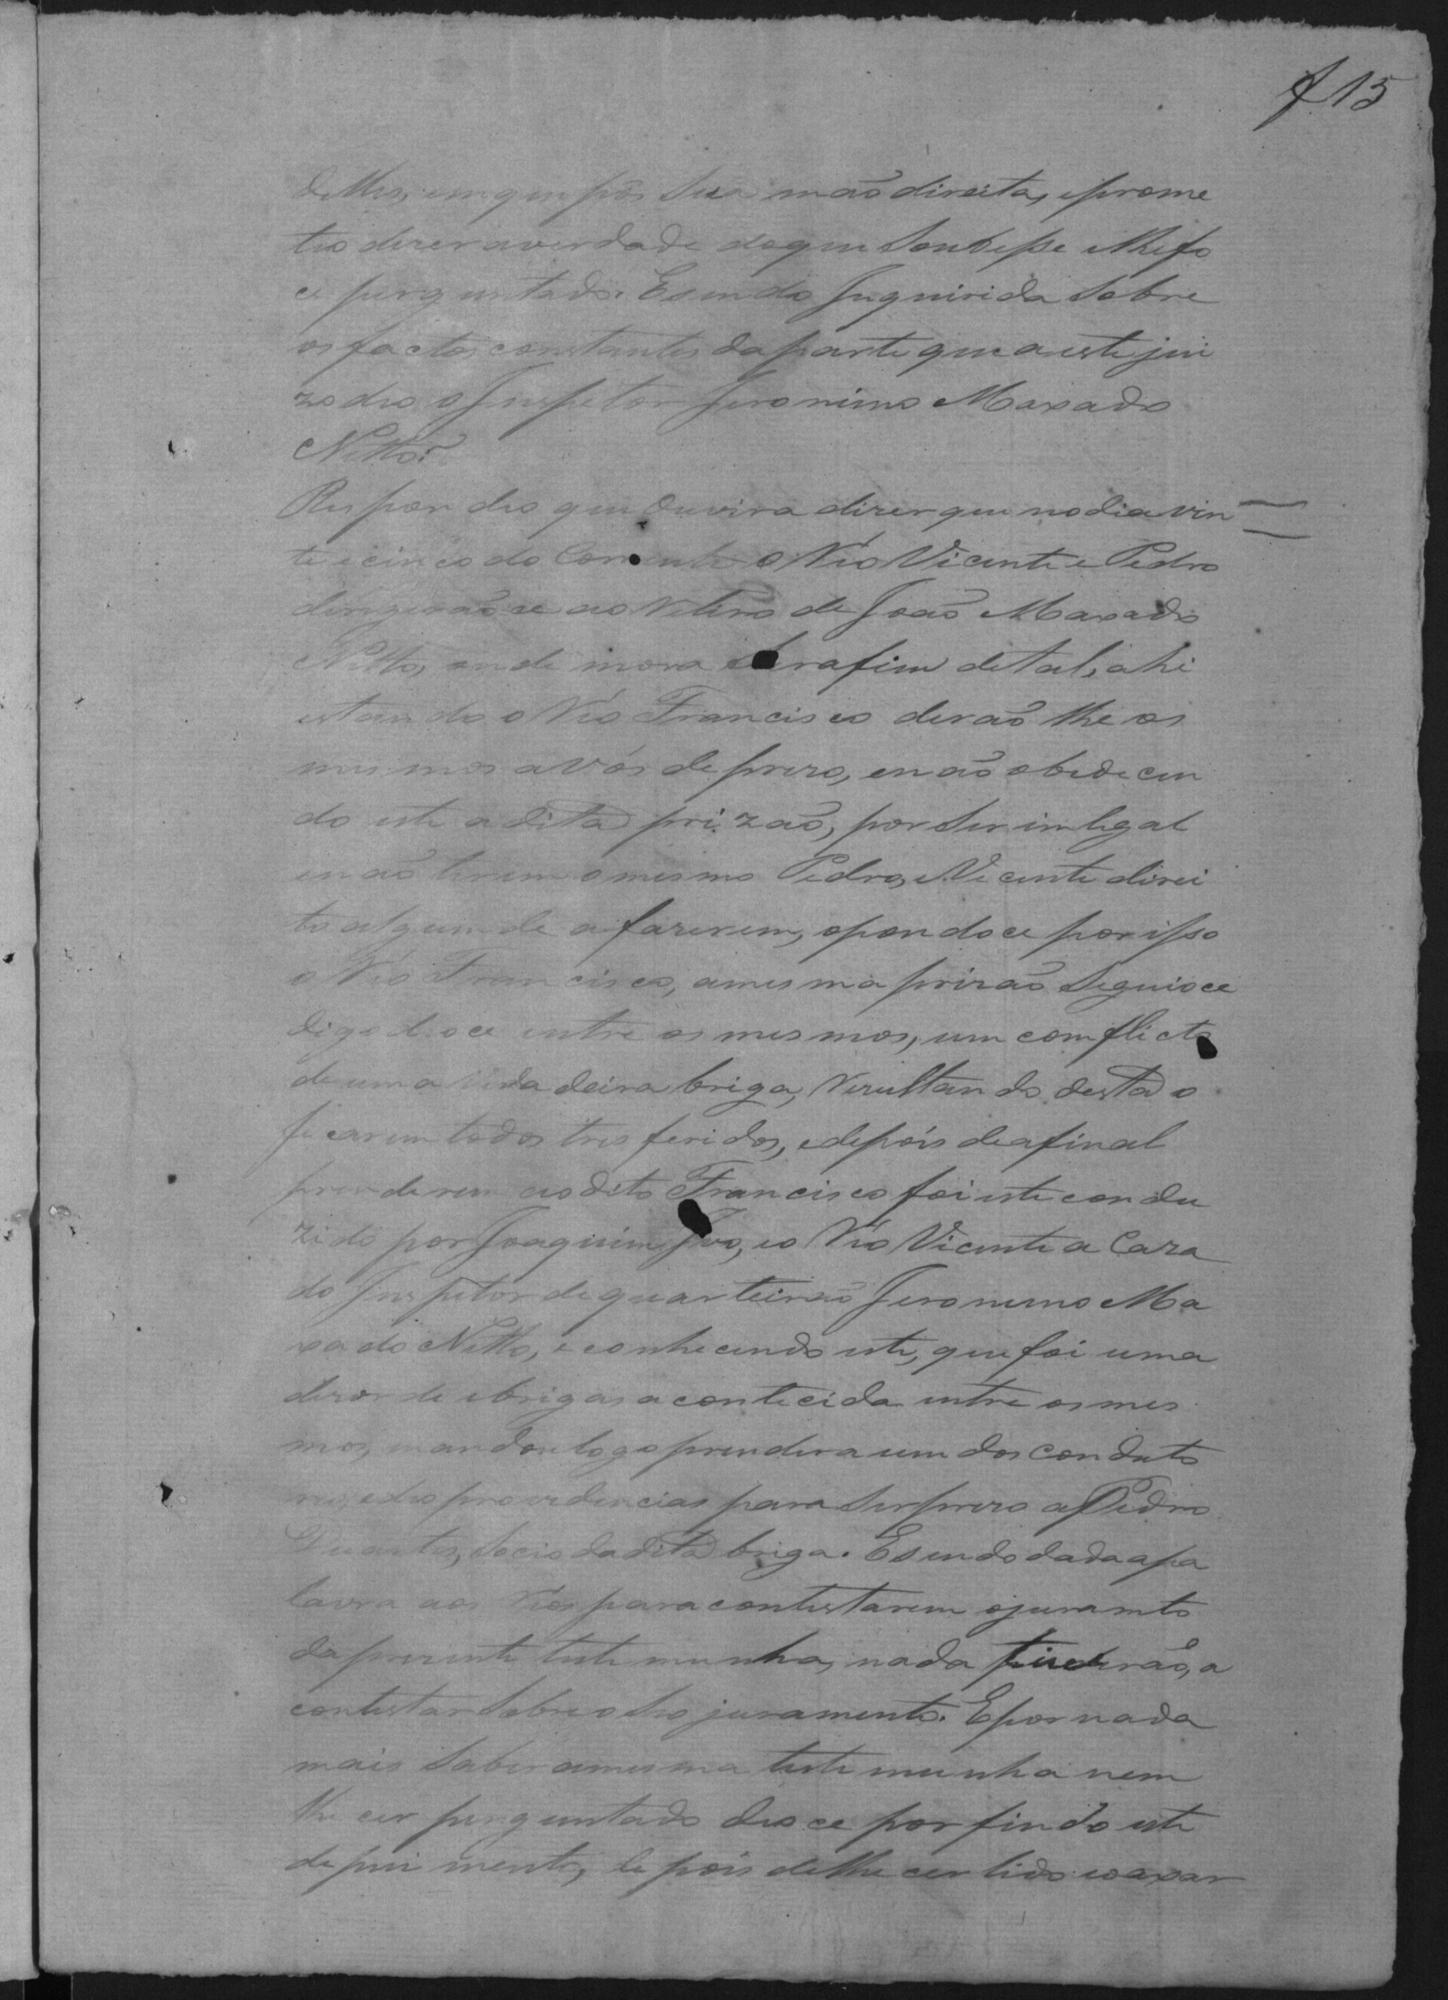 f 15
delles, em que pôs sua mão direita, e prome
teo dizer averdade doque Soubesse elhefo
ce perguntado. Esendo Inquirida Sobre
os factos constantes da parte que a este jui
zo deo o Inspetor Jeronimo Maxado
Netto?
Respondeo que Ouvira dizer que no dia vin
te e cinco do Corrente O Réo Vicente e Pedro
dirigirãoce ao Retiro de João Maxado
Netto, onde mora Serafim de tal, ahi
estando o Réo Francisco derão lhe os
mesmos a vós de prezo, e não obedecen
do este a dita prizão, por Ser inlegal
e não terem o mesmo Pedro, e Vicente direi
to algum de a fazerem, opondoce por isso
o Réo Francisco, a mesma prizão Seguioce
digo deoce entre os mesmos, um comflicto
de uma verdadeira briga, Rezultando desta o
ficarem todos tres feridos, e depois de afinal
prenderem ao dito Francisco foi este condu
zido por Joaquim Ivo, e o Réo Vicente a Caza
do Inspetor de quarteirão Jeronimo Ma
xado Netto, e conhecendo este, que foi uma
dezorde e brigas acontecida entre os mes
mos, mandou logo prender a um dos conduto
res, e deo providencias para Ser prezo a Pedro
Duarte, Socio da dita briga. E sendo dada a pa
lavra aos Réos para contestarem o juramto
da prezente testemunha, nada tiverão, a
contestar Sobre o Seo juramento. E por nada
mais Saber a mesma testemunha nem
lhe cer perguntado deoce por findo este
depuimento, depois de lhe cer lido e o axar